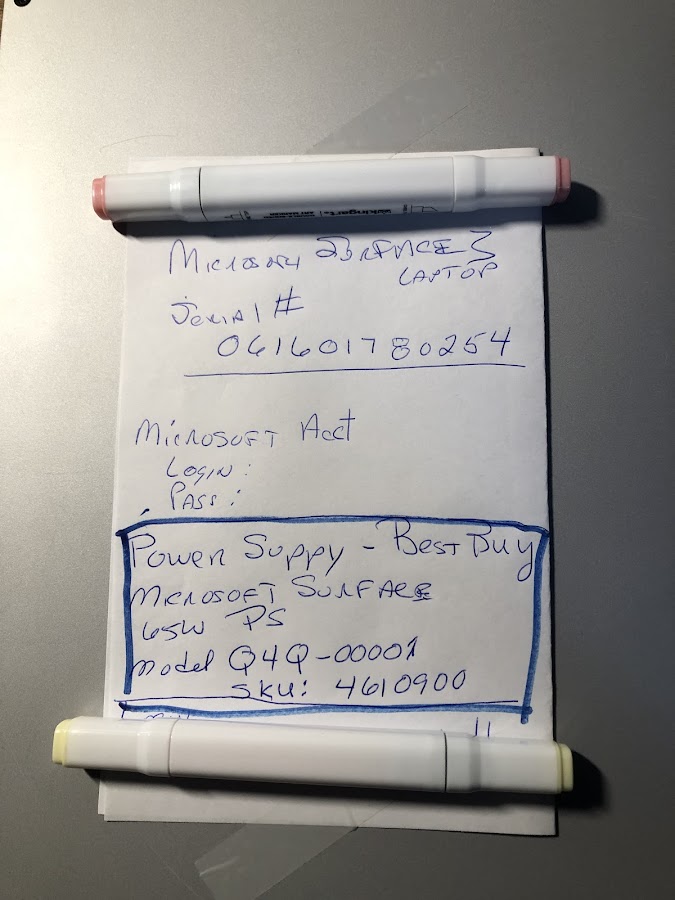 Microsoft Surface 3
Laptop
Serial #
061601780254
Microsoft Acct
Login:
Pass:
Power Suppy - Best Buy
Microsoft Surface
65W PS
Model Q4Q-00001
SKU: 4610900